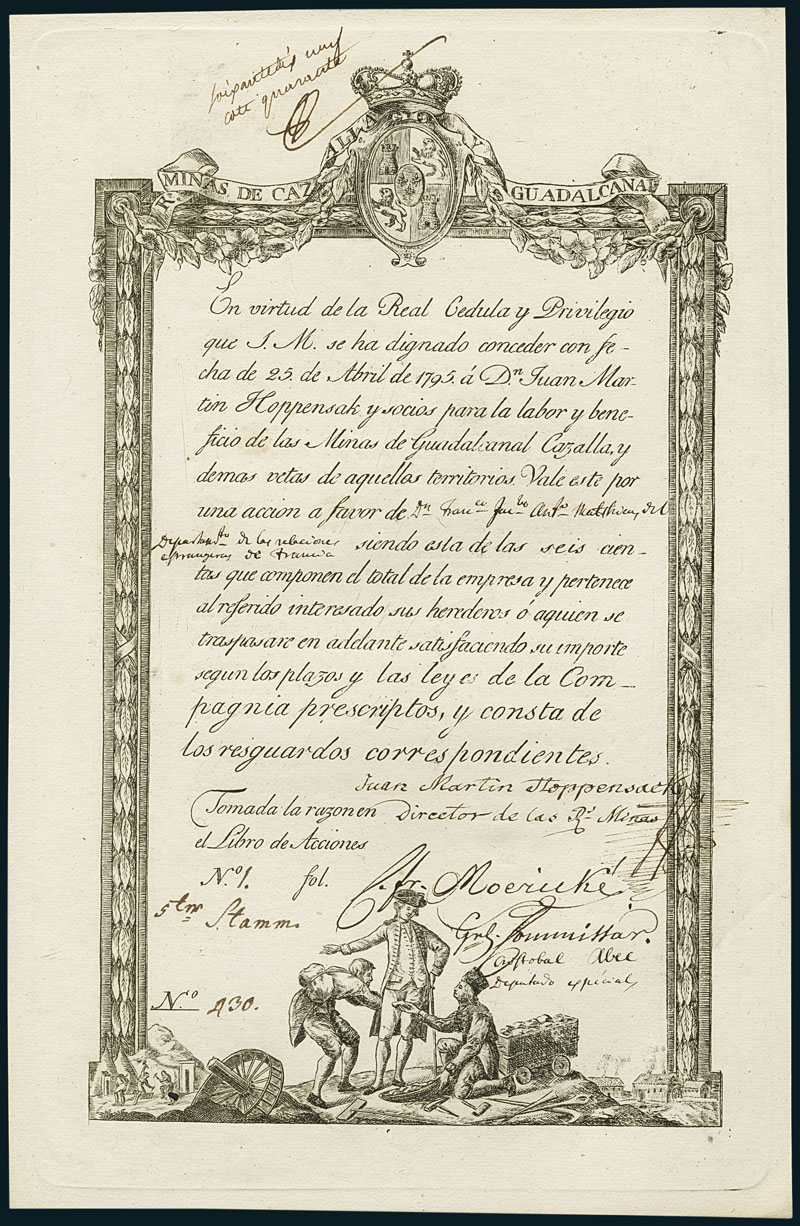 cote quarante
Rs. MINAS DE CAZALLA GUADALCANAL
En virtud de la Real Cedula y Privilegio
que S. M. se ha dignado conceder con fe-
cha de 25. de Abril de 1795. á Dn. Juan Mar-
tin Hoppensak, y socios para la labor y bene-
ficio de las Minas de Guadalcanal Cazalla, y
demas vetas de aquellos territorios. Vale este por
una accion a favor de Dn del
de las relaciones
estrangeras de Francia siendo esta de las seis cien-
tas que componen el total de la empresa y pertenece
al referido interesado sus herederos o aquien se
traspasare en addante satisfaciendo su importe
segun los plazos y las leyes de la Com-
pagnia prescriptos, y consta de
los resguardos correspondientes.
Juan Martin Hoppensack
Tomada la razon en Director de las Rs. Minas
el Libro de Acciones
No. 1. fol.
Moericke
5ter Stamm.
Commissar.
Cristobal Abee
Deputado especial
No. 430.